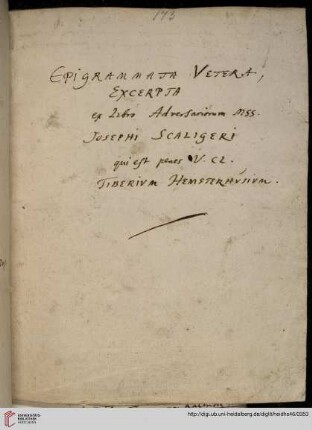 143
EPIGRAMMATA VETERA,
EXCERPTA
ex Libro Adversariorum MSS.
JOSEPHI SCALIGERI
qui est penes V. CL.
TIBERIUM HEMSTERHUSIUM.
http://digi.ub.uni-heidelberg.de/diglit/heidhs46/0353
UNIVERSITÄTS-
BIBLIOTHEK
HEIDELBERG